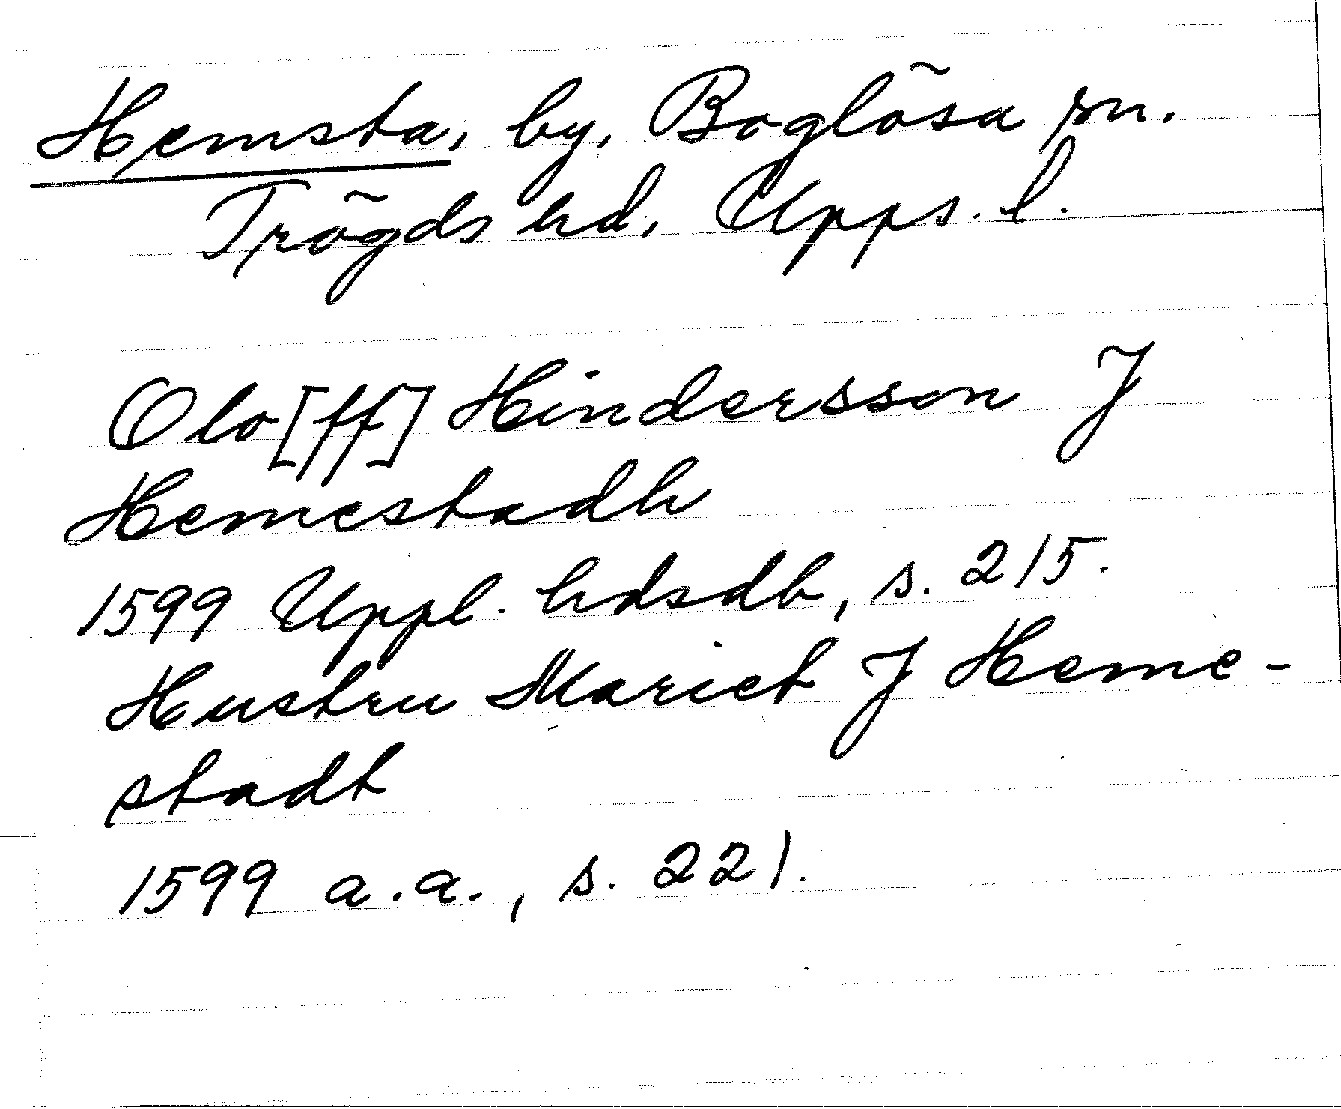 Hemsta, by, Boglösa sn.
Trögds hd, Upps. l.
Olo[ff] Hindersson J
Hemestadh
1599 Uppl. hdsdb, s. 215.
Hustru Mariet J Heme-
stadt
1599 a.a., s. 221.